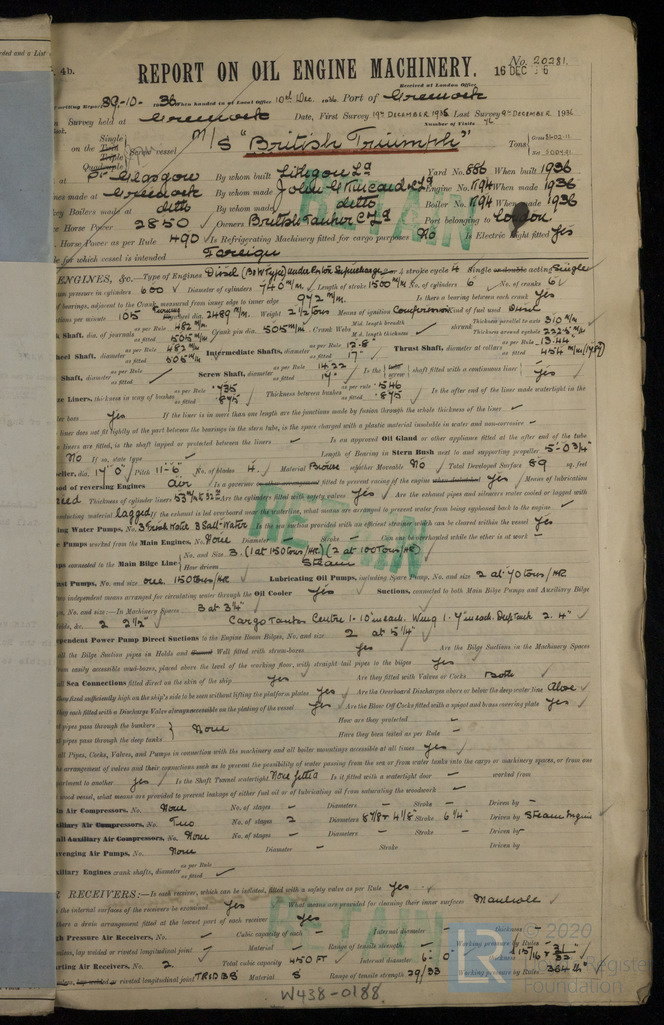 4b.
REPORT ON OIL ENGINE MACHINERY.
No. 20281.
16 DEC
Received at London Office
Writing Report 29-10-1936 When handed in at Local Office 10th Dec. 1936 Port of Greenock
Survey held at Greenock Date, First Survey Last Survey 9th DECEMBER 1936
Number of Visits
on the Single Twin Triple Quadruple Screw vessel M/S "British Triumph" Tons Gross Net
at Pt Glasgow By whom built Lithgows Ld Yard No. 886 When built 1936
made at Greenock By whom made John G. Kincaid & Co Ld Engine No. When made 1936
Boilers made at ditto By whom made ditto Boiler No. When made 1936
Horse Power 2850 Owners British Tanker Co Ld Port belonging to London
Horse Power as per Rule 490 Is Refrigerating Machinery fitted for cargo purposes No Is Electric Light fitted Yes
for which vessel is intended Foreign
ENGINES, &c.—Type of Engines Diesel (B&W Type) Under Piston Supercharge 4 stroke cycle 4 Single or double acting Single
pressure in cylinders 600 Diameter of cylinders 740 m/m. Length of stroke 1500 m/m No. of cylinders 6 No. of cranks 6
of bearings, adjacent to the Crank, measured from inner edge to inner edge 972 m/m. Is there a bearing between each crank Yes
per minute 105 Turning Wheel dia. 2489 m/m. Weight 2 1/2 tons Means of ignition Compression Kind of fuel used Diesel
Shaft, dia. of journals as per Rule 482 m/m as fitted 505 m/m Crank pin dia. 505 m/m Crank Webs Mid. length breadth Mid. length thickness shrunk Thickness parallel to axis 310 m/m Thickness around eyehole 222.5 m/m
Shaft, diameter as per Rule 482 m/m as fitted 505 m/m Intermediate Shafts, diameter as per Rule 12.8" as fitted 17" Thrust Shaft, diameter at collars as per Rule 13.44 as fitted 454 m/m
Shaft, diameter as per Rule as fitted Screw Shaft, diameter as per Rule 14.22 as fitted 17" Is the shaft fitted with a continuous liner Yes
Liners, thickness in way of bushes as per Rule .735 as fitted .875 Thickness between bushes as per Rule .546 as fitted .875 Is the after end of the liner made watertight in the
boss Yes If the liner is in more than one length are the junctions made by fusion through the whole thickness of the liner –
liner does not fit tightly at the part between the bearings in the stern tube, is the space charged with a plastic material insoluble in water and non-corrosive –
liners are fitted, is the shaft lapped or protected between the liners – Is an approved Oil Gland or other appliance fitted at the after end of the
No If so, state type – Length of Bearing in Stern Bush next to and supporting propeller 5'-0 3/4"
dia. 17'0" Pitch 11'-6" No. of blades 4. Material Bronze whether Moveable No Total Developed Surface 89 sq. feet
of reversing Engines Air Is a governor or other arrangement fitted to prevent racing of the engine Yes Means of lubrication
Forced Thickness of cylinder liners Are the cylinders fitted with safety valves Yes Are the exhaust pipes and silencers water cooled or lagged with
conducting material Lagged If the exhaust is led overboard near the waterline, what means are arranged to prevent water from being syphoned back to the engine –
Water Pumps, No. 3 Fresh Water 3 Salt-Water Is the sea suction provided with an efficient strainer which can be cleared within the vessel Yes
Pumps worked from the Main Engines, No. None Diameter – Stroke – Can one be overhauled while the other is at work –
connected to the Main Bilge Line No. and Size 3. (1 at 150 Tons/HR) (2 at 100 Tons/HR)
How driven Steam
Pumps, No. and size One 150 Tons/HR Lubricating Oil Pumps, including Spare Pump, No. and size 2 at 70 Tons/HR
independent means arranged for circulating water through the Oil Cooler Yes Suctions, connected to both Main Bilge Pumps and Auxiliary Bilge
No. and size:—In Machinery Spaces 3 at 3 1/4"
Holds, &c. 2 2 1/2" Cargo Tanks Centre 1-10" in each, Wing 1-7" in each. Deep Tank 2. 4"
Independent Power Pump Direct Suctions to the Engine Room Bilges, No. and size 2 at 5 1/4"
all the Bilge Suction pipes in Holds and Tunnel Well fitted with strum-boxes Yes Are the Bilge Suctions in the Machinery Spaces
easily accessible mud-boxes, placed above the level of the working floor, with straight tail pipes to the bilges Yes
Sea Connections fitted direct on the skin of the ship Yes Are they fitted with Valves or Cocks Both
fixed sufficiently high on the ship's side to be seen without lifting the platform plates Yes Are the Overboard Discharges above or below the deep water line Above
they each fitted with a Discharge Valve always accessible on the plating of the vessel Yes Are the Blow Off Cocks fitted with a spigot and brass covering plate Yes
pipes pass through the bunkers None How are they protected –
pipes pass through the deep tanks Have they been tested as per Rule –
all Pipes, Cocks, Valves, and Pumps in connection with the machinery and all boiler mountings accessible at all times Yes
the arrangement of valves and their connections such as to prevent the possibility of water passing from the sea or from water tanks into the cargo or machinery spaces, or from one
compartment to another Yes Is the Shaft Tunnel watertight None fitted Is it fitted with a watertight door – worked from
wood vessel, what means are provided to prevent leakage of either fuel oil or of lubricating oil from saturating the woodwork –
Air Compressors, No. None No. of stages – Diameters – Stroke – Driven by –
Auxiliary Air Compressors, No. Two No. of stages 2 Diameters 8 7/8 & 4 1/8 Stroke 6 1/4" Driven by Steam Engine
Small Auxiliary Air Compressors, No. None No. of stages – Diameters – Stroke Driven by –
Scavenging Air Pumps, No. None Diameter – Stroke Driven by
Auxiliary Engines crank shafts, diameter as per Rule as fitted
RECEIVERS:—Is each receiver, which can be isolated, fitted with a safety valve as per Rule Yes
the internal surfaces of the receivers be examined Yes What means are provided for cleaning their inner surfaces Manhole
there a drain arrangement fitted at the lowest part of each receiver Yes
High Pressure Air Receivers, No. – Cubic capacity of each – Internal diameter – thickness –
lap welded or riveted longitudinal joint – Material – Range of tensile strength – Working pressure by Rules –
Starting Air Receivers, No. 2 Total cubic capacity 450 FT Internal diameter 6'-0" thickness
lap welded or riveted longitudinal joint TRDBS Material S Range of tensile strength 29/33 Working pressure by Rules 364 lb
W438-0188
RETAIN
RETAIN
RETAIN
LR
© 2020
Lloyd's Register
Foundation